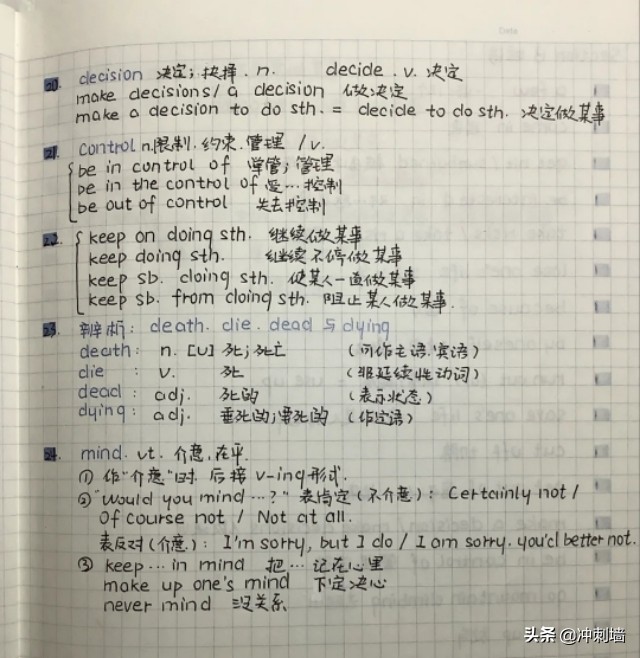 Date
20. decision 决定；抉择. n. decide. v. 决定
make decisions/ a decision 做决定
make a decision to do sth. = decide to do sth. 决定做某事
21. control n.限制.约束.管理 / v.
be in control of 掌管；管理
be in the control of 受…控制
be out of control 失去控制
22. keep on doing sth. 继续做某事
keep doing sth. 继续不停做某事
keep sb. doing sth. 使某人一直做某事
keep sb. from doing sth. 阻止某人做某事.
23. 辨析: death. die. dead 与 dying
death: n. [U] 死；死亡 (可作主语.宾语)
die: v. 死 (非延续性动词)
dead: adj. 死的 (表示状态)
dying: adj. 垂死的；要死的 (作定语)
24. mind. vt. 介意.在乎.
① 作"介意"时 后接 v-ing 形式.
②"Would you mind …?" 表肯定(不介意): Certainly not /
Of course not / Not at all.
表反对(介意.): I'm sorry, but I do / I am sorry. you'd better not.
③ keep … in mind 把…记在心里
make up one's mind 下定决心
never mind 没关系
头条 @冲刺墙